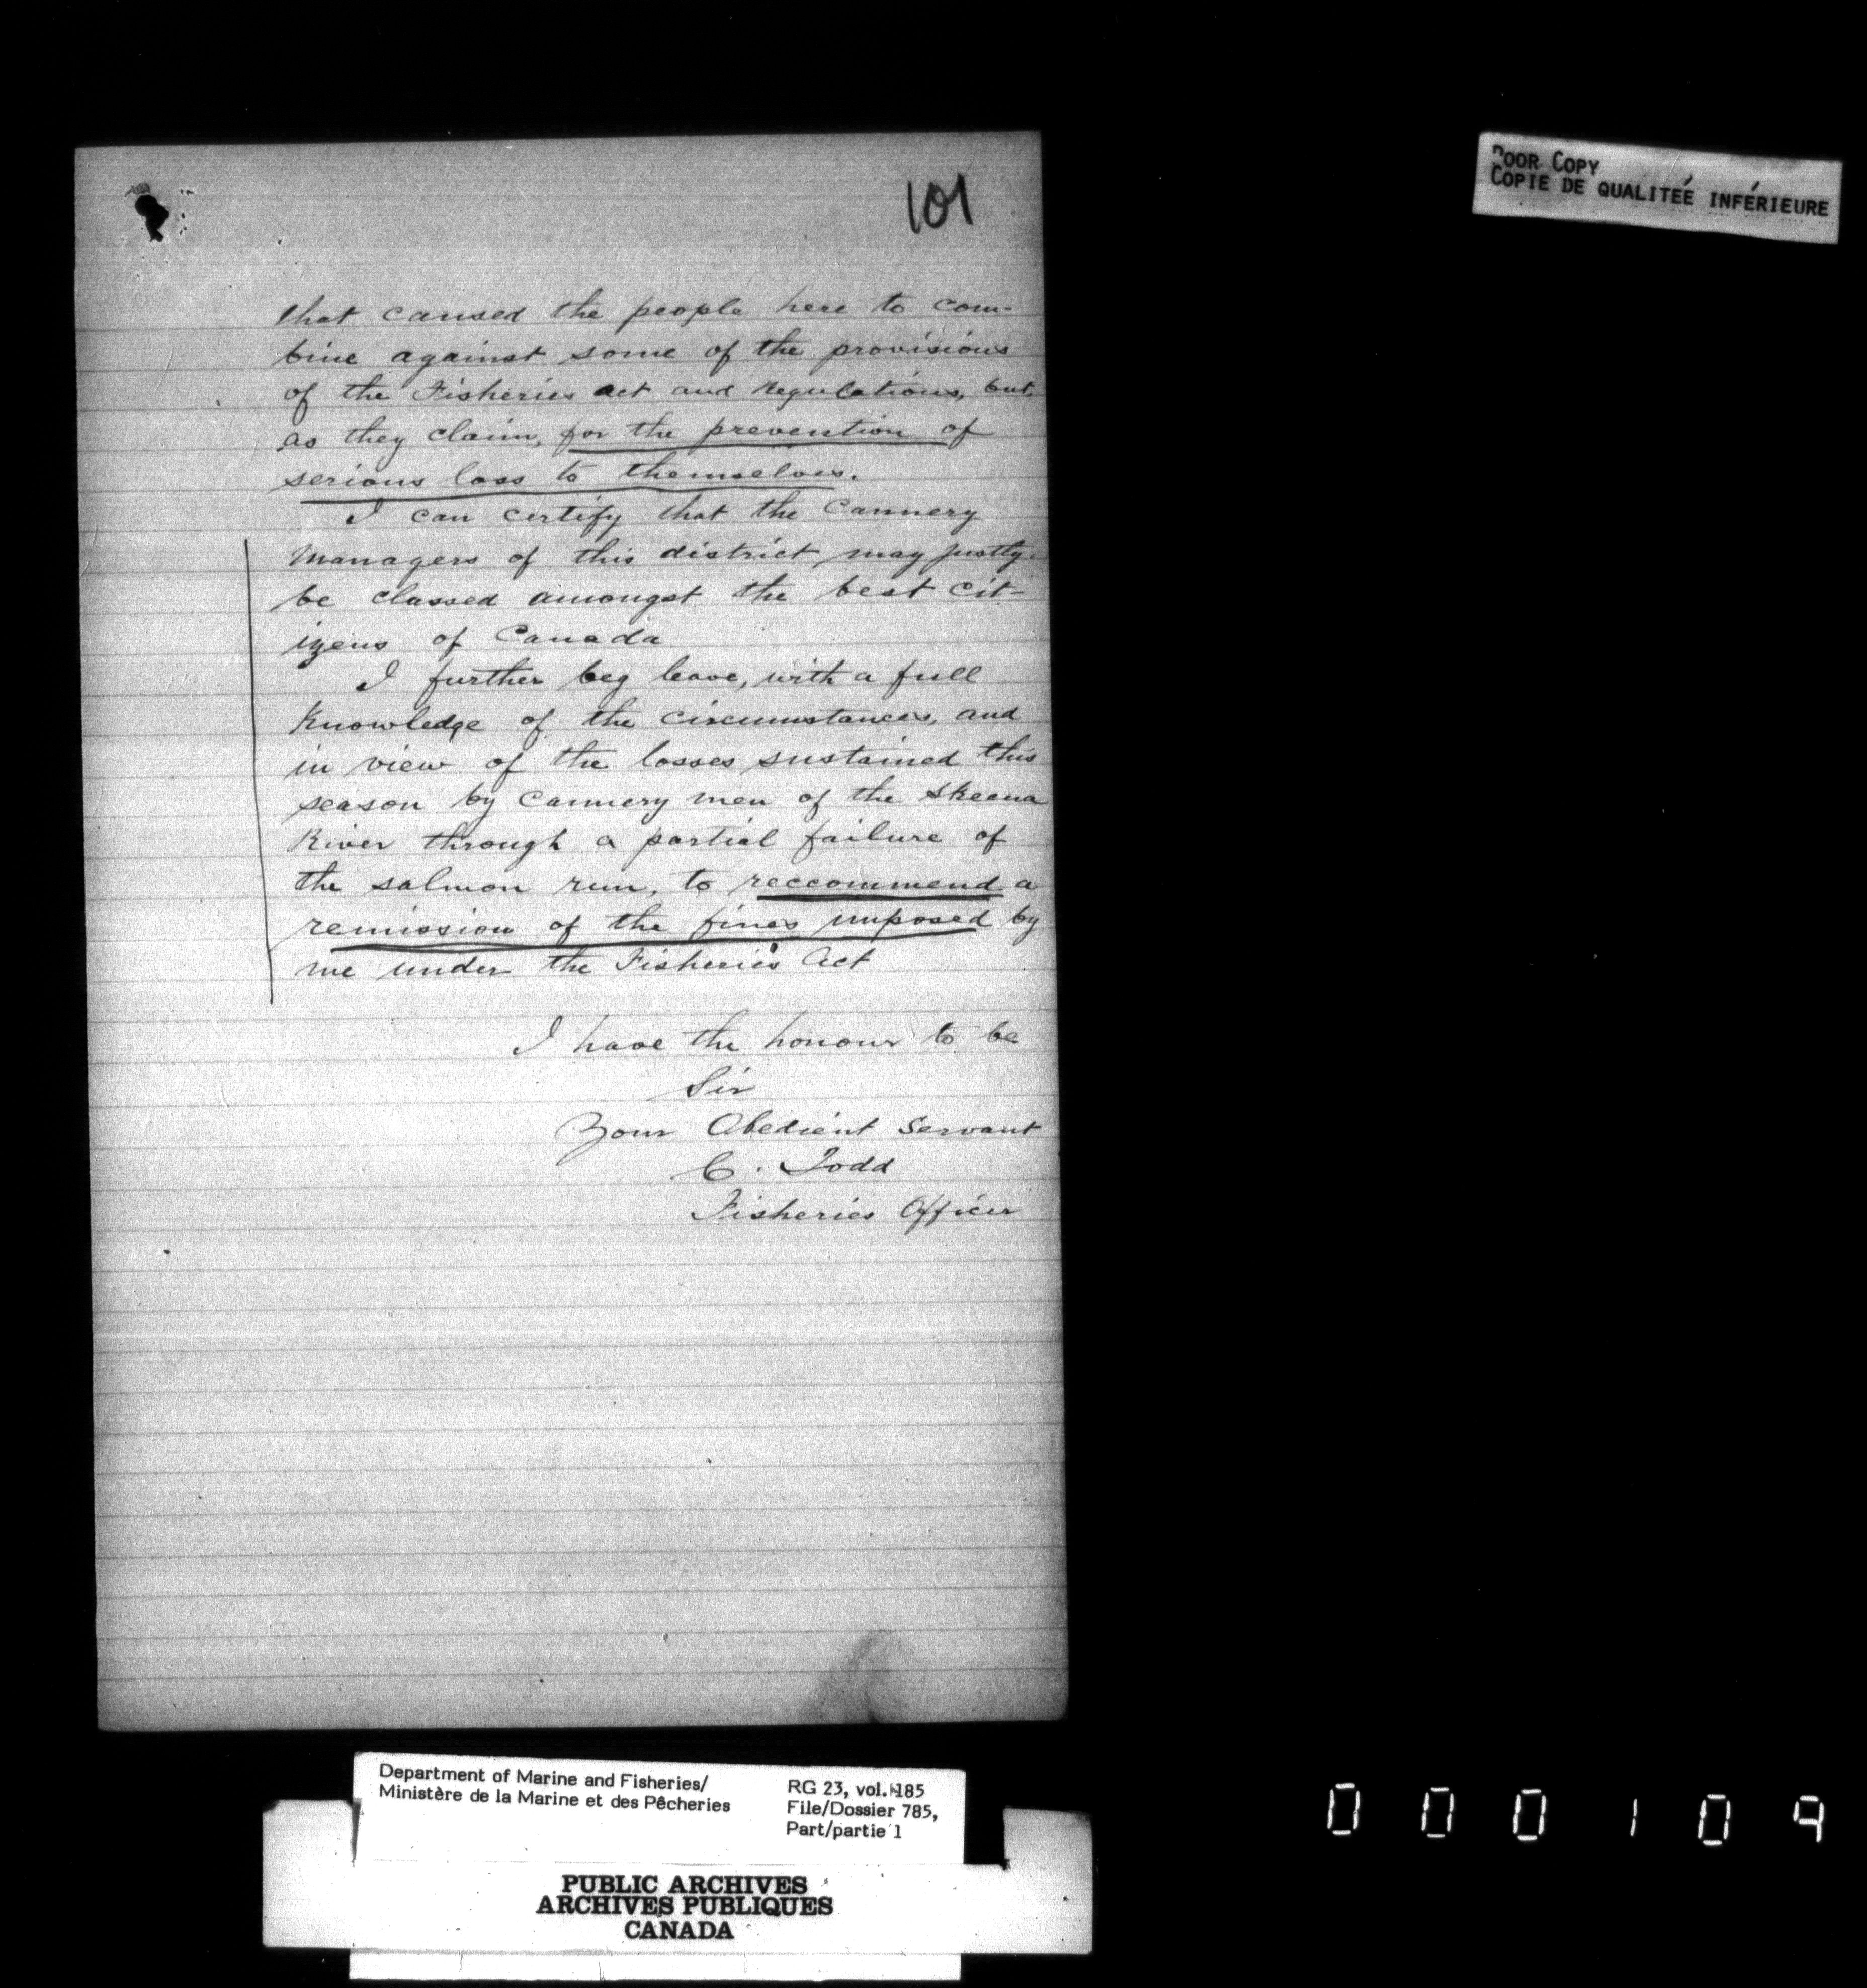 101
POOR COPY
COPIE DE QUALITEÉ INFÉRIEURE
that caused the people here to com-
bine against some of the provisions
of the Fisheries act and regulations, but,
as they claim, for the prevention of
serious loss to themselves.
I can certify that the Cannery
Managers of this district may justly
be classed amongst the best cit-
izens of Canada
I further beg leave, with a full
knowledge of the circumstances, and
in view of the losses sustained this
season by Cannery men of the Skeena
River through a partial failure of
the salmon run, to reccommend a
remission of the fines imposed by
me under the Fisheries Act
I have the honour to be
Sir
Your Obedient Servant
C. Todd
Fisheries Officer
Department of Marine and Fisheries/
Ministère de la Marine et des Pêcheries
RG 23, vol. 185
File/Dossier 785,
Part/partie 1
PUBLIC ARCHIVES
ARCHIVES PUBLIQUES
CANADA
000109